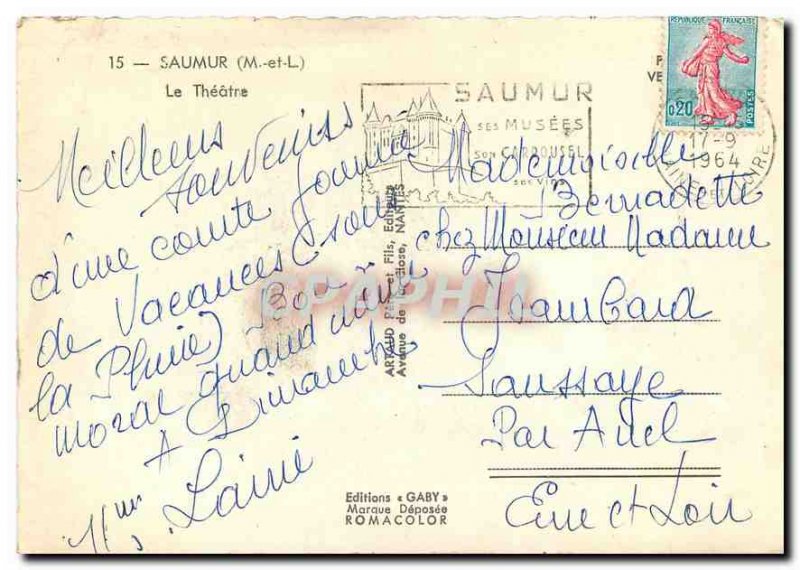 15 — SAUMUR (M.-et-L.)
Le Théâtre
Meilleurs
souvenirs
d'une courte journée
de Vacances (sous
la Pluie) Bon
moral quand même
A Dimanche
Mme Lainé
SAUMUR
SES MUSÉES
SON CARROUSEL
SES VINS
RÉPUBLIQUE FRANÇAISE
0,20
POSTES
17-9
1964
ARTAUD Père et Fils, Editeurs
Avenue de la NANTES
EPAPHIL
Mademoiselle
Bernadette
chez Monsieur Madame
Jrambard
Saussaye
Par Anet
Eure et Loir
Editions « GABY »
Marque Déposée
ROMACOLOR